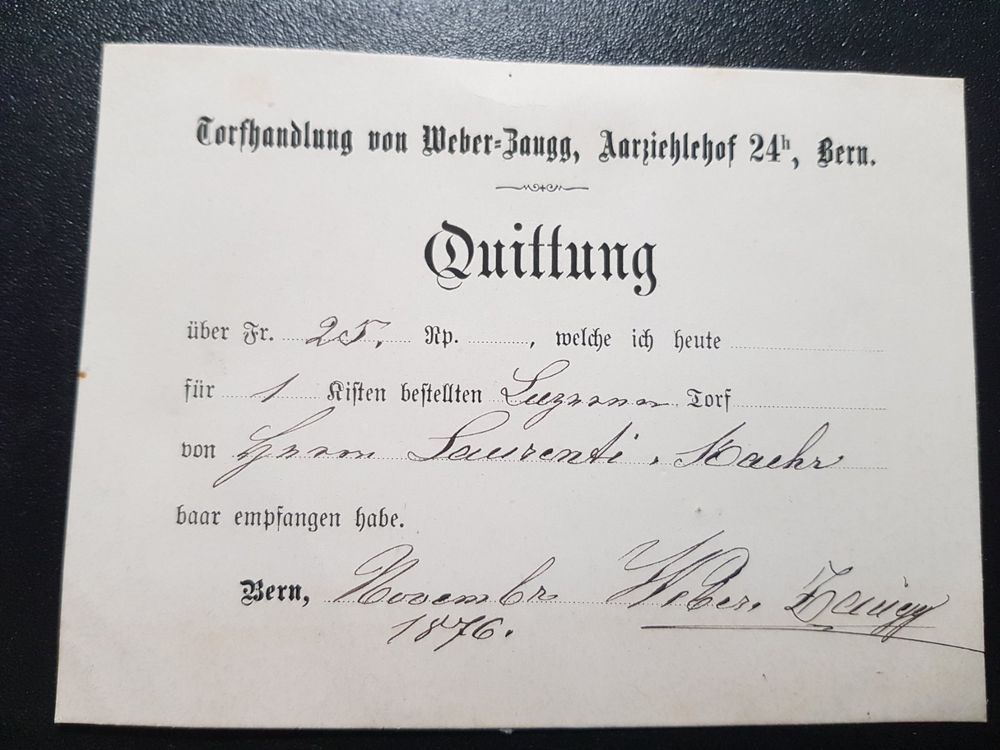 Torfhandlung von Weber-Zaugg, Aarziehlehof 24h, Bern.
Quittung
über Fr. 25. Rp. , welche ich heute
für 1 Kisten bestellten Luzerner Torf
von Herrn Laurenti,
baar empfangen habe.
Bern, Novembr. Weber. Zaugg
1876.